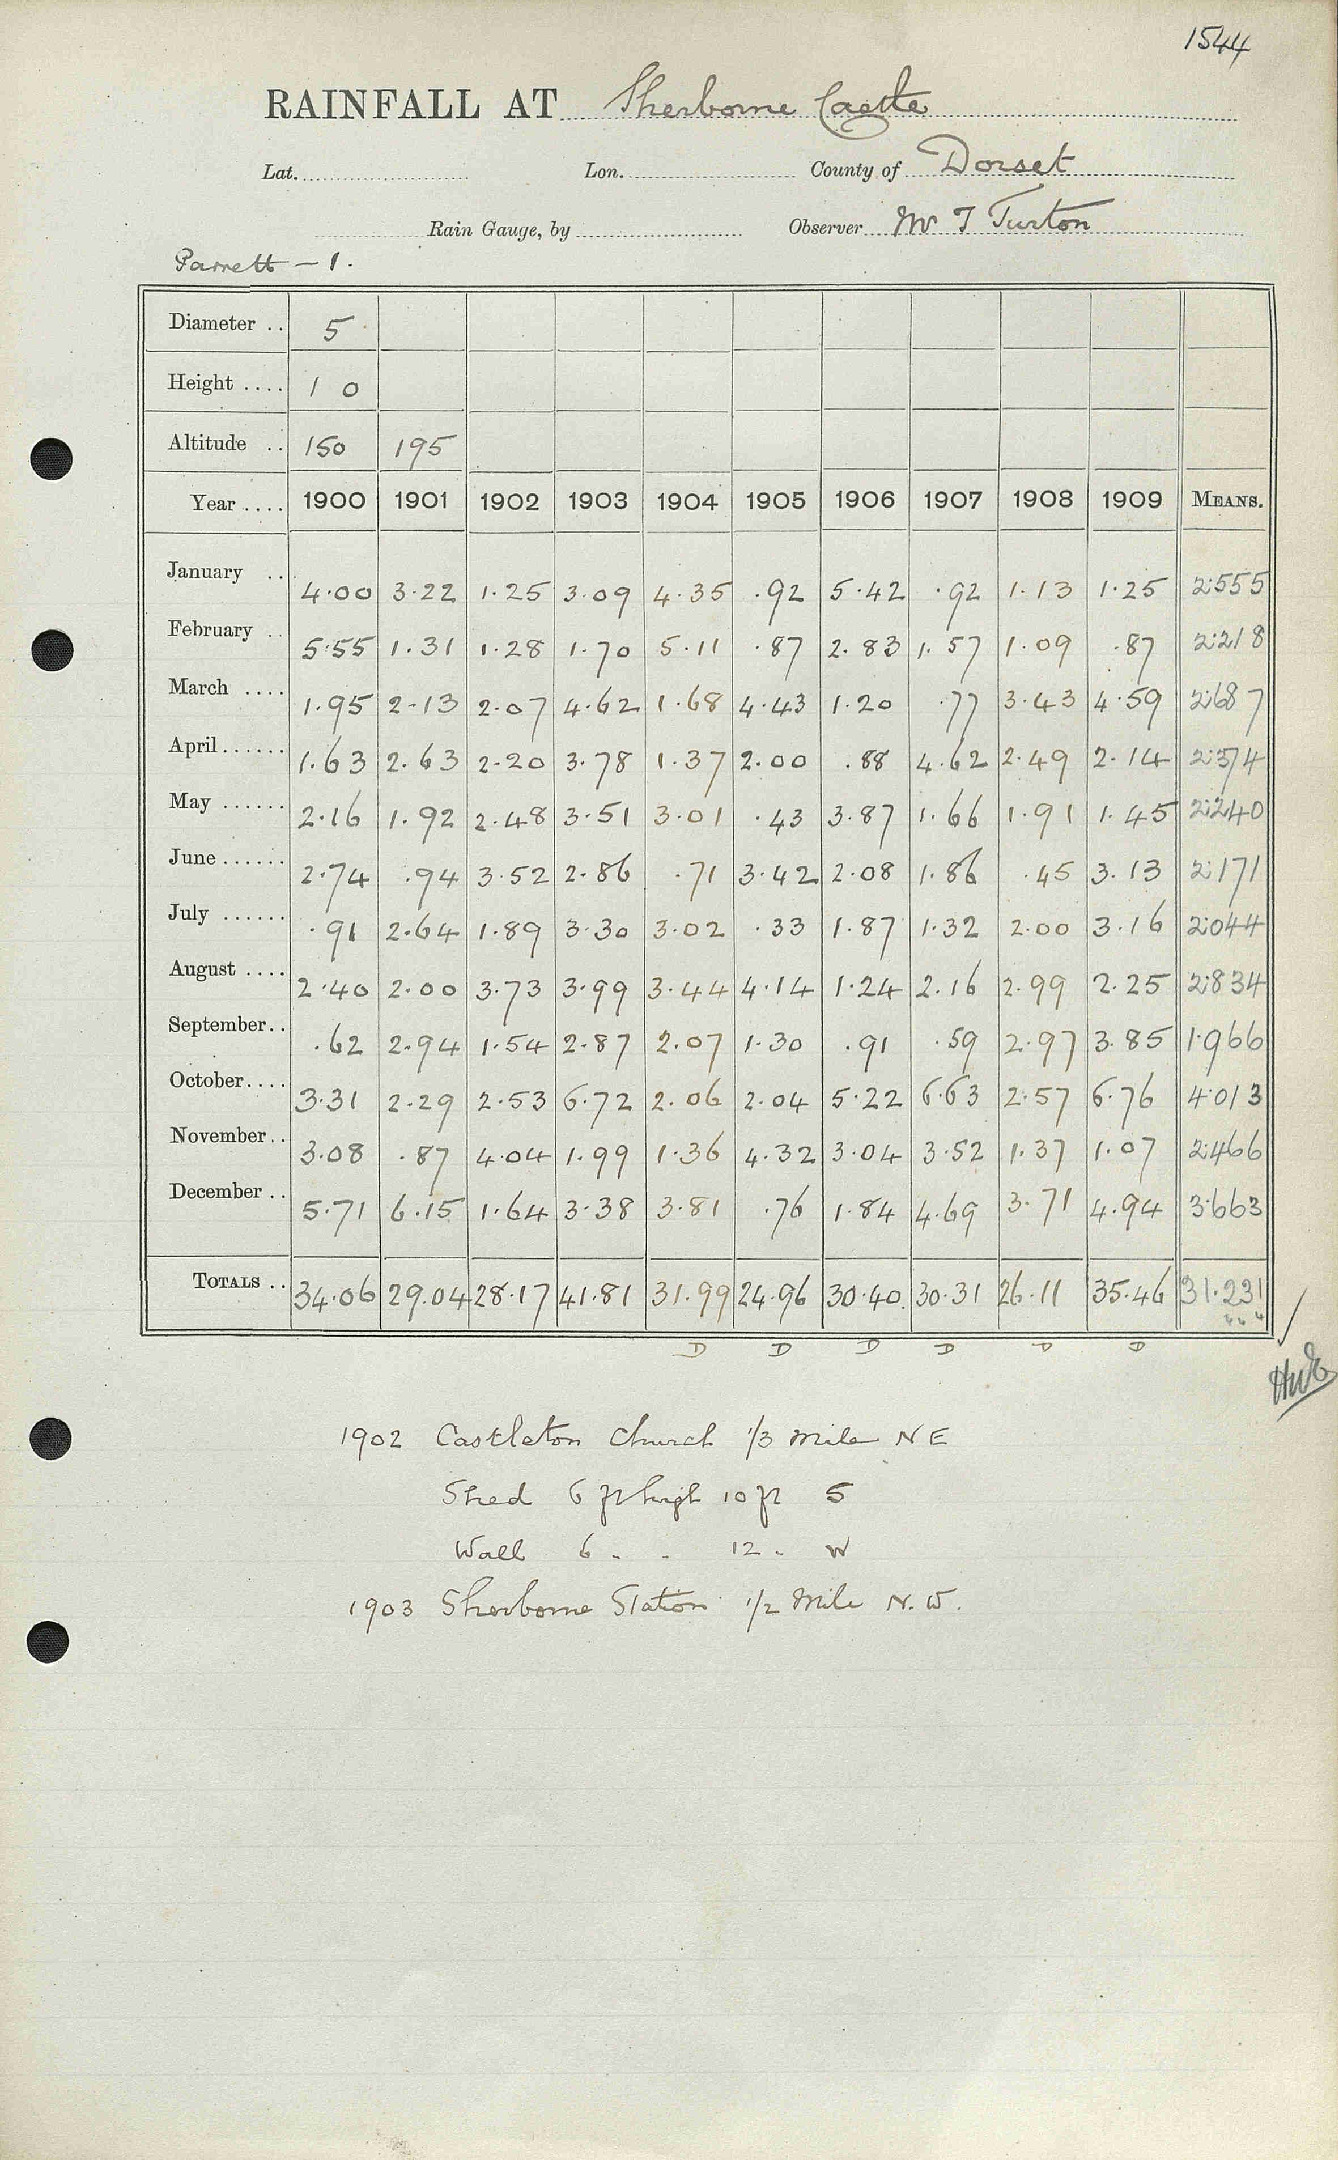 1544
RAINFALL AT Sherborne Castle
Lat. Lon. County of Dorset
Rain Gauge, by Observer Mr T Turton
Parrett - 1.
Diameter .. 5
Height .... 1 0
Altitude .. 150 195
Year .... 1900 1901 1902 1903 1904 1905 1906 1907 1908 1909 MEANS.
January .. 4.00 3.22 1.25 3.09 4.35 .92 5.42 .92 1.13 1.25 2.555
February .. 5.55 1.31 1.28 1.70 5.11 .87 2.83 1.57 1.09 .87 2.218
March .... 1.95 2.13 2.07 4.62 1.68 4.43 1.20 .77 3.43 4.59 2.687
April ...... 1.63 2.63 2.20 3.78 1.37 2.00 .88 4.62 2.49 2.14 2.374
May ...... 2.16 1.92 2.48 3.51 3.01 .43 3.87 1.66 1.91 1.45 2.240
June ...... 2.74 .94 3.52 2.86 .71 3.42 2.08 1.86 .45 3.13 2.171
July ...... .91 2.64 1.89 3.30 3.02 .33 1.87 1.32 2.00 3.16 2.044
August .... 2.40 2.00 3.73 3.99 3.44 4.14 1.24 2.16 2.99 2.25 2.834
September .. .62 2.94 1.54 2.87 2.07 1.30 .91 .59 2.97 3.85 1.966
October .... 3.31 2.29 2.53 6.72 2.06 2.04 5.22 6.63 2.57 6.76 4.013
November .. 3.08 .87 4.04 1.99 1.36 4.32 3.04 3.52 1.37 1.07 2.466
December .. 5.71 6.15 1.64 3.38 3.81 .76 1.84 4.69 3.71 4.94 3.663
TOTALS .. 34.06 29.04 28.17 41.81 31.99 24.96 30.40 30.31 26.11 35.46 31.231
D D D D D D
1902 Castleton Church 1/3 mile NE
Shed 6 ft high 10 ft S
Wall 6 " " 12 " W
1903 Sherborne Station 1/2 Mile N.W.